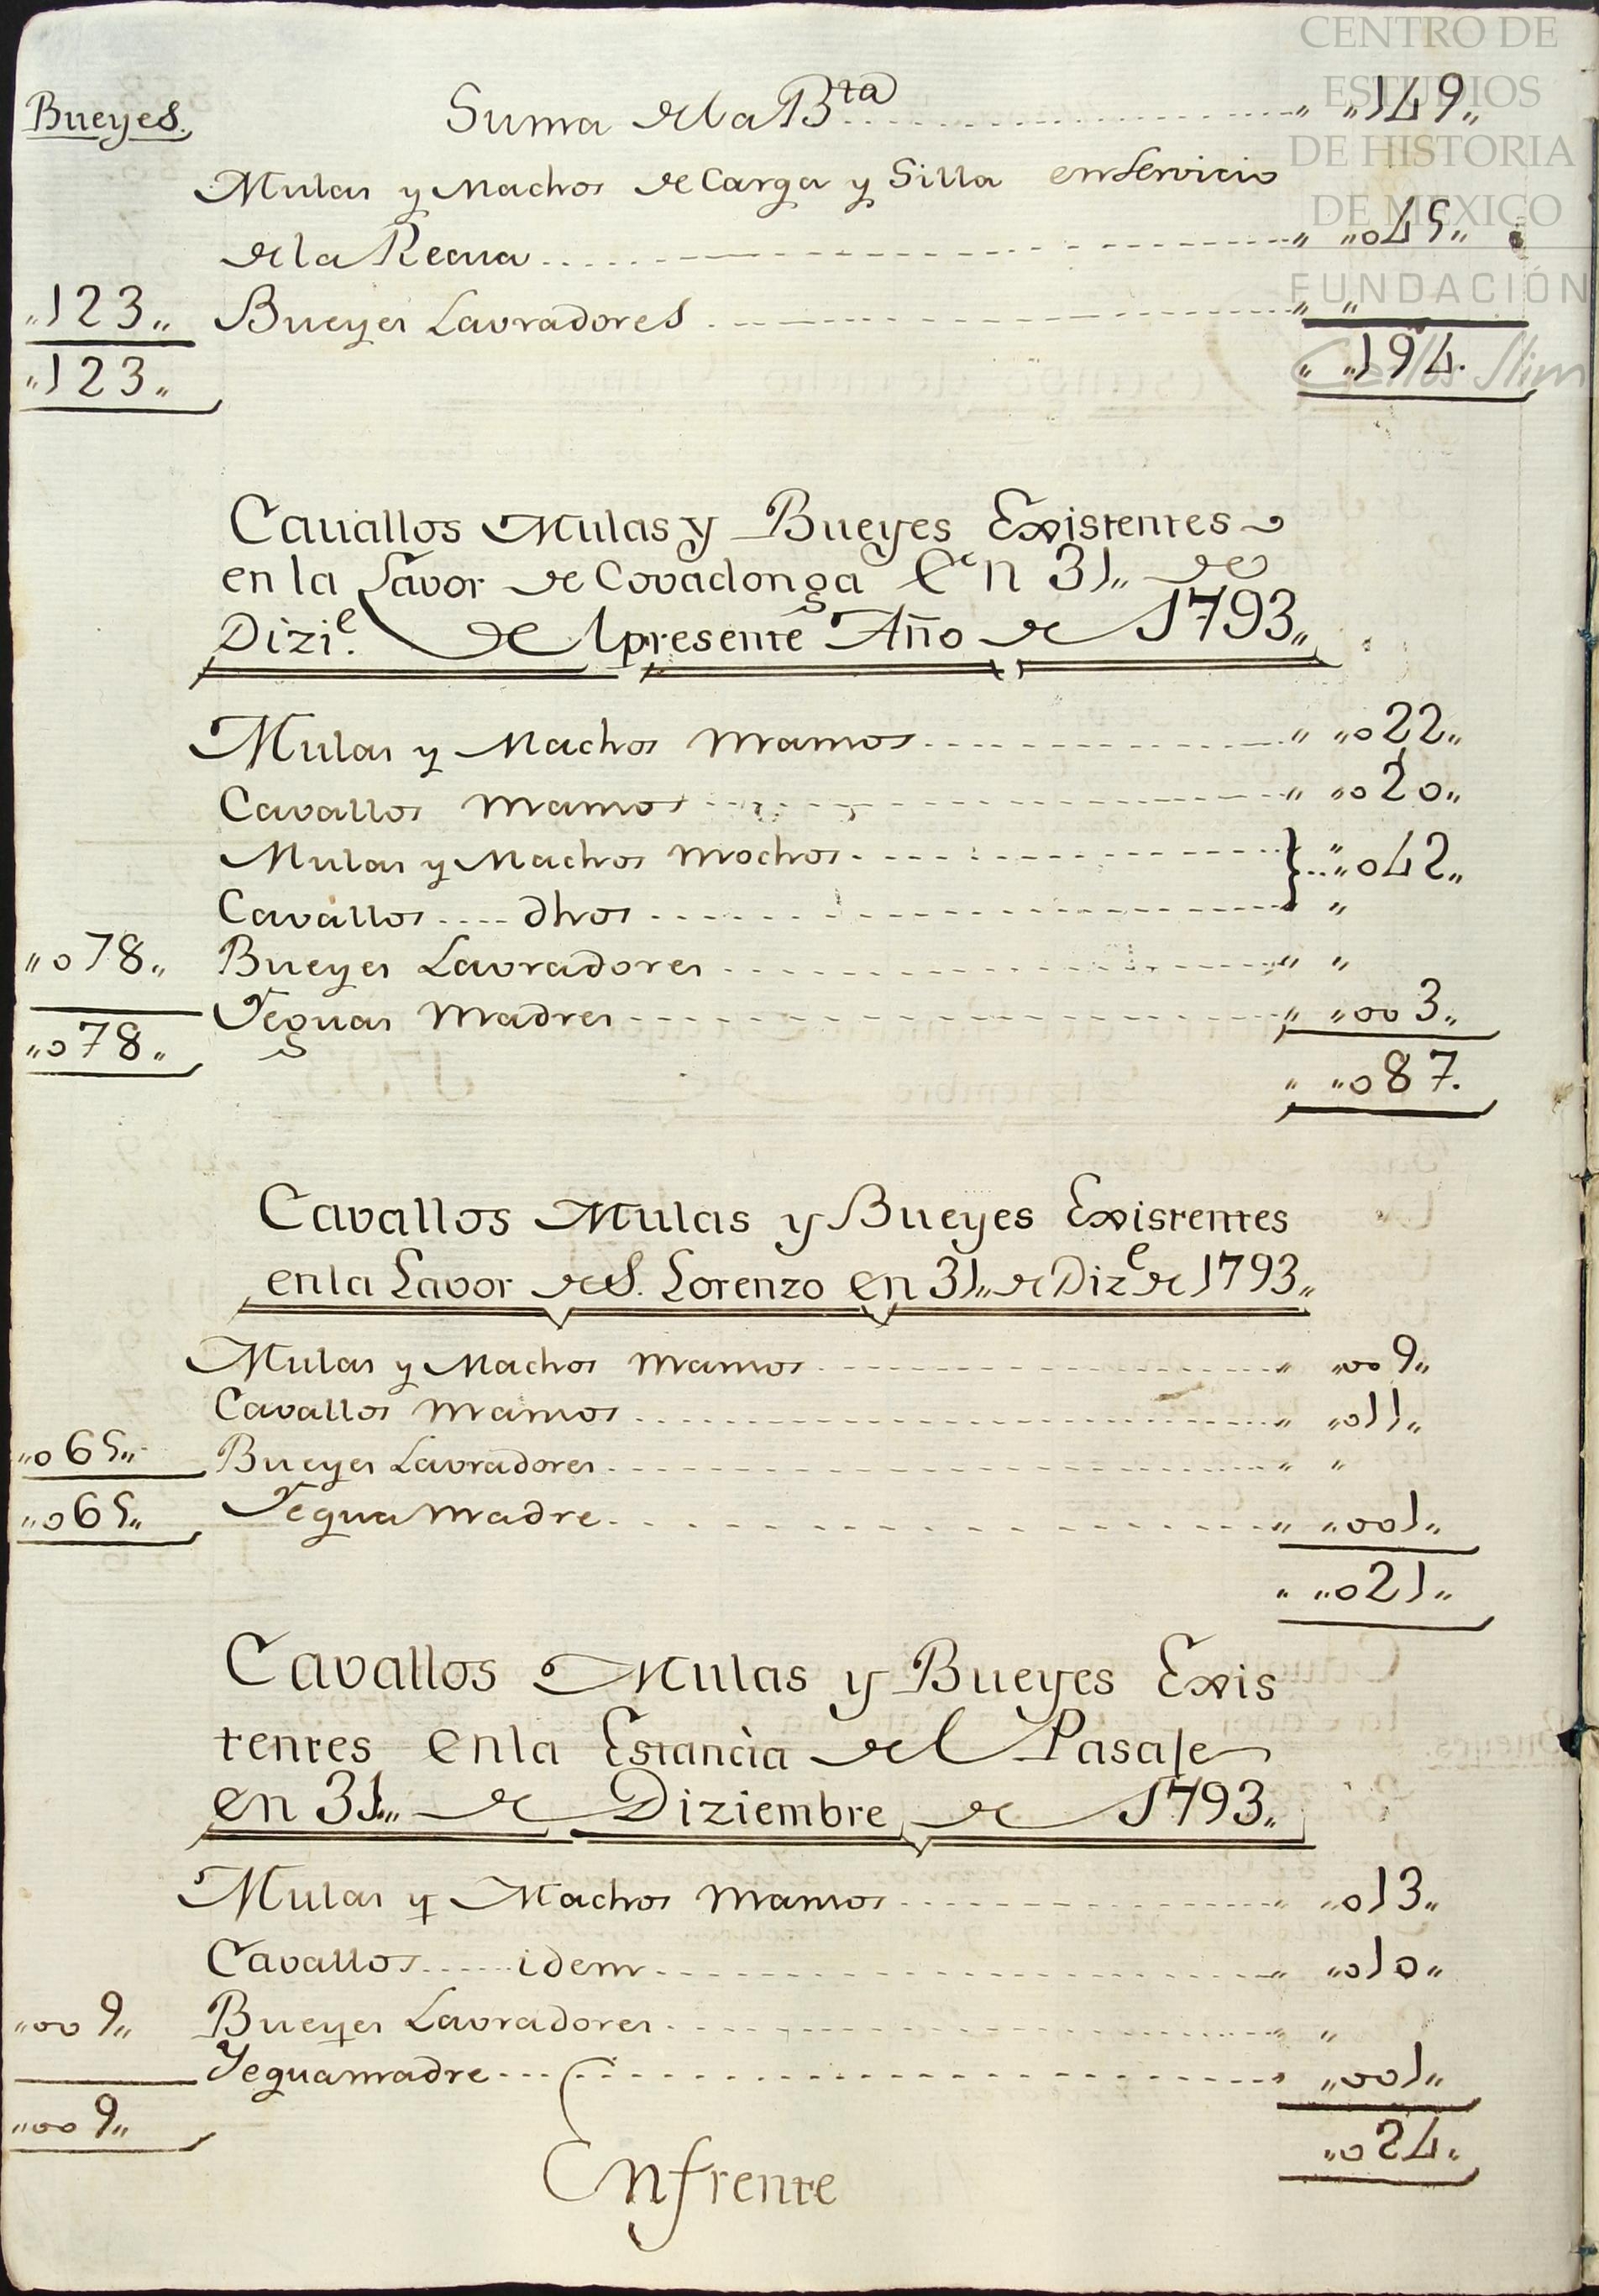 CENTRO DE
ESTUDIOS
DE HISTORIA
DE MEXICO
FUNDACIÓN
Carlos Slim
Bueyes. Suma de la B.ta ,, ,,149,,
Mulas y Machos de Carga y Silla en Servicio
de la Recua ,, ,,045,,
,,123,, Bueyes Lavradores ,, ,,
,,123,, ,, ,,194.
Cavallos Mulas y Bueyes Existentes
en la Lavor de Covadonga en 31,, de
Dizi.e del presente Año de 1793,,
Mulas y Machos Mansos ,, ,,022,,
Cavallos Mansos ,, ,,020,,
Mulas y Machos Mochos ,,
} ,,042,,
Cavallos dhos ,, ,,
,,078,, Bueyes Lavradores ,, ,,
Yeguas Madres ,, ,,003,,
,,078,,
,, ,,087.
Cavallos Mulas y Bueyes Existentes
en la Lavor de S. Lorenzo en 31,, de Diz.e de 1793,,
Mulas y Machos Mansos ,, ,,009,,
Cavallos Mansos ,, ,,011,,
,,065,, Bueyes Lavradores ,, ,,
,,065,, Yegua Madre ,, ,,001,,
,, ,,021,,
Cavallos Mulas y Bueyes Exis
tentes en la Estancia del Pasaje
en 31,, de Diziembre de 1793,,
Mulas y Machos Mansos ,, ,,013,,
Cavallos idem ,, ,,010,,
,,009,, Bueyes Lavradores ,, ,,
Yegua madre ,, ,,001,,
,,009,, ,,024,,
Enfrente